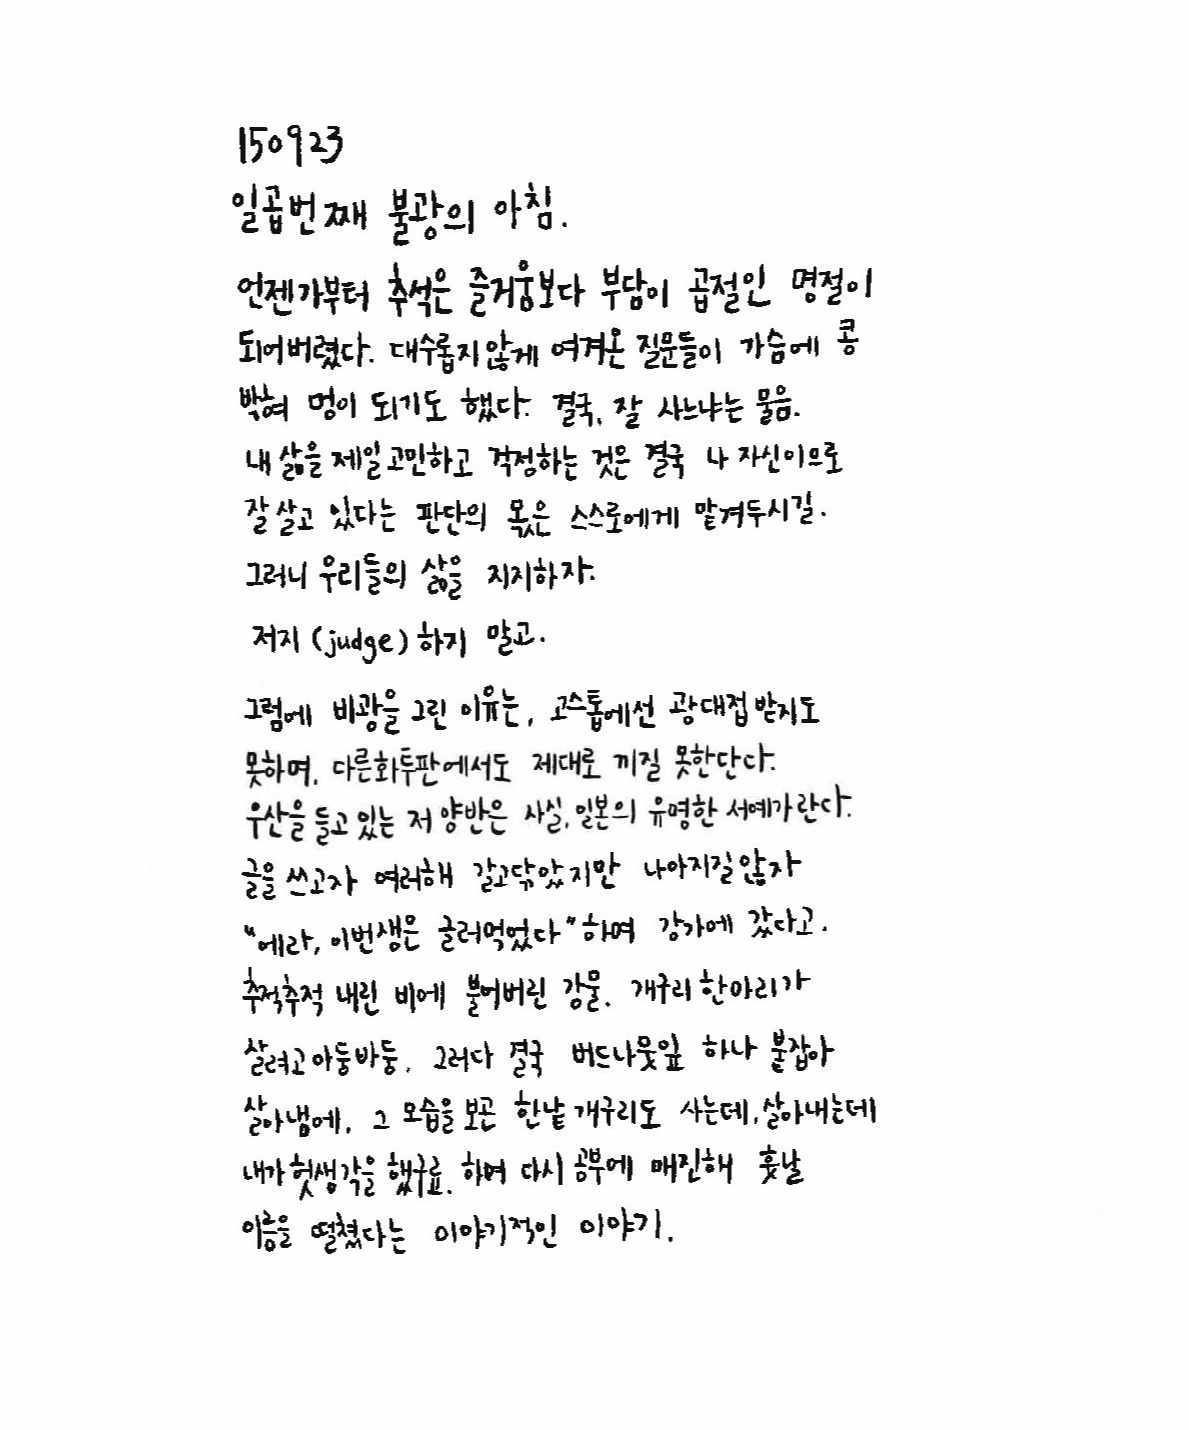 150923
일곱번째 불광의 아침.
언젠가부터 추석은 즐거움보다 부담이 곱절인 명절이
되어버렸다. 대수롭지않게 여겨온 질문들이 가슴에 콩
박혀 멍이 되기도 했다. 결국, 잘 사느냐는 물음.
내 삶을 제일 고민하고 걱정하는 것은 결국 나 자신이므로
잘 살고 있다는 판단의 몫은 스스로에게 맡겨두시길.
그러니 우리들의 삶을 지지하자.
저지(judge)하지 말고.
그럼에 비광을 그린 이유는, 고스톱에선 광대접받지도
못하며, 다른화투판에서도 제대로 끼질 못한단다.
우산을 들고 있는 저 양반은 사실, 일본의 유명한 서예가란다.
글을 쓰고자 여러해 갈고닦았지만 나아지질않자
"에라, 이번생은 글러먹었다"하며 강가에 갔다고.
추적추적 내린 비에 불어버린 강물. 개구리한마리가
살려고아둥바둥, 그러다 결국 버드나뭇잎 하나 붙잡아
살아냄에, 그 모습을 보곤 한낱 개구리도 사는데, 살아내는데
내가 헛생각을 했구료. 하며 다시 공부에 매진해 훗날
이름을 떨쳤다는 이야기적인 이야기.